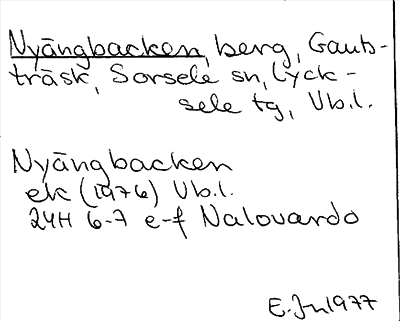 Nyängbacken, berg, Gauts-
träsk, Sorsele sn, Lyck-
sele tg, Vb.l.
Nyängbacken
ek (1976) Vb.l.
24H 6-7 e-f Nalovardo
E. Jn 1977